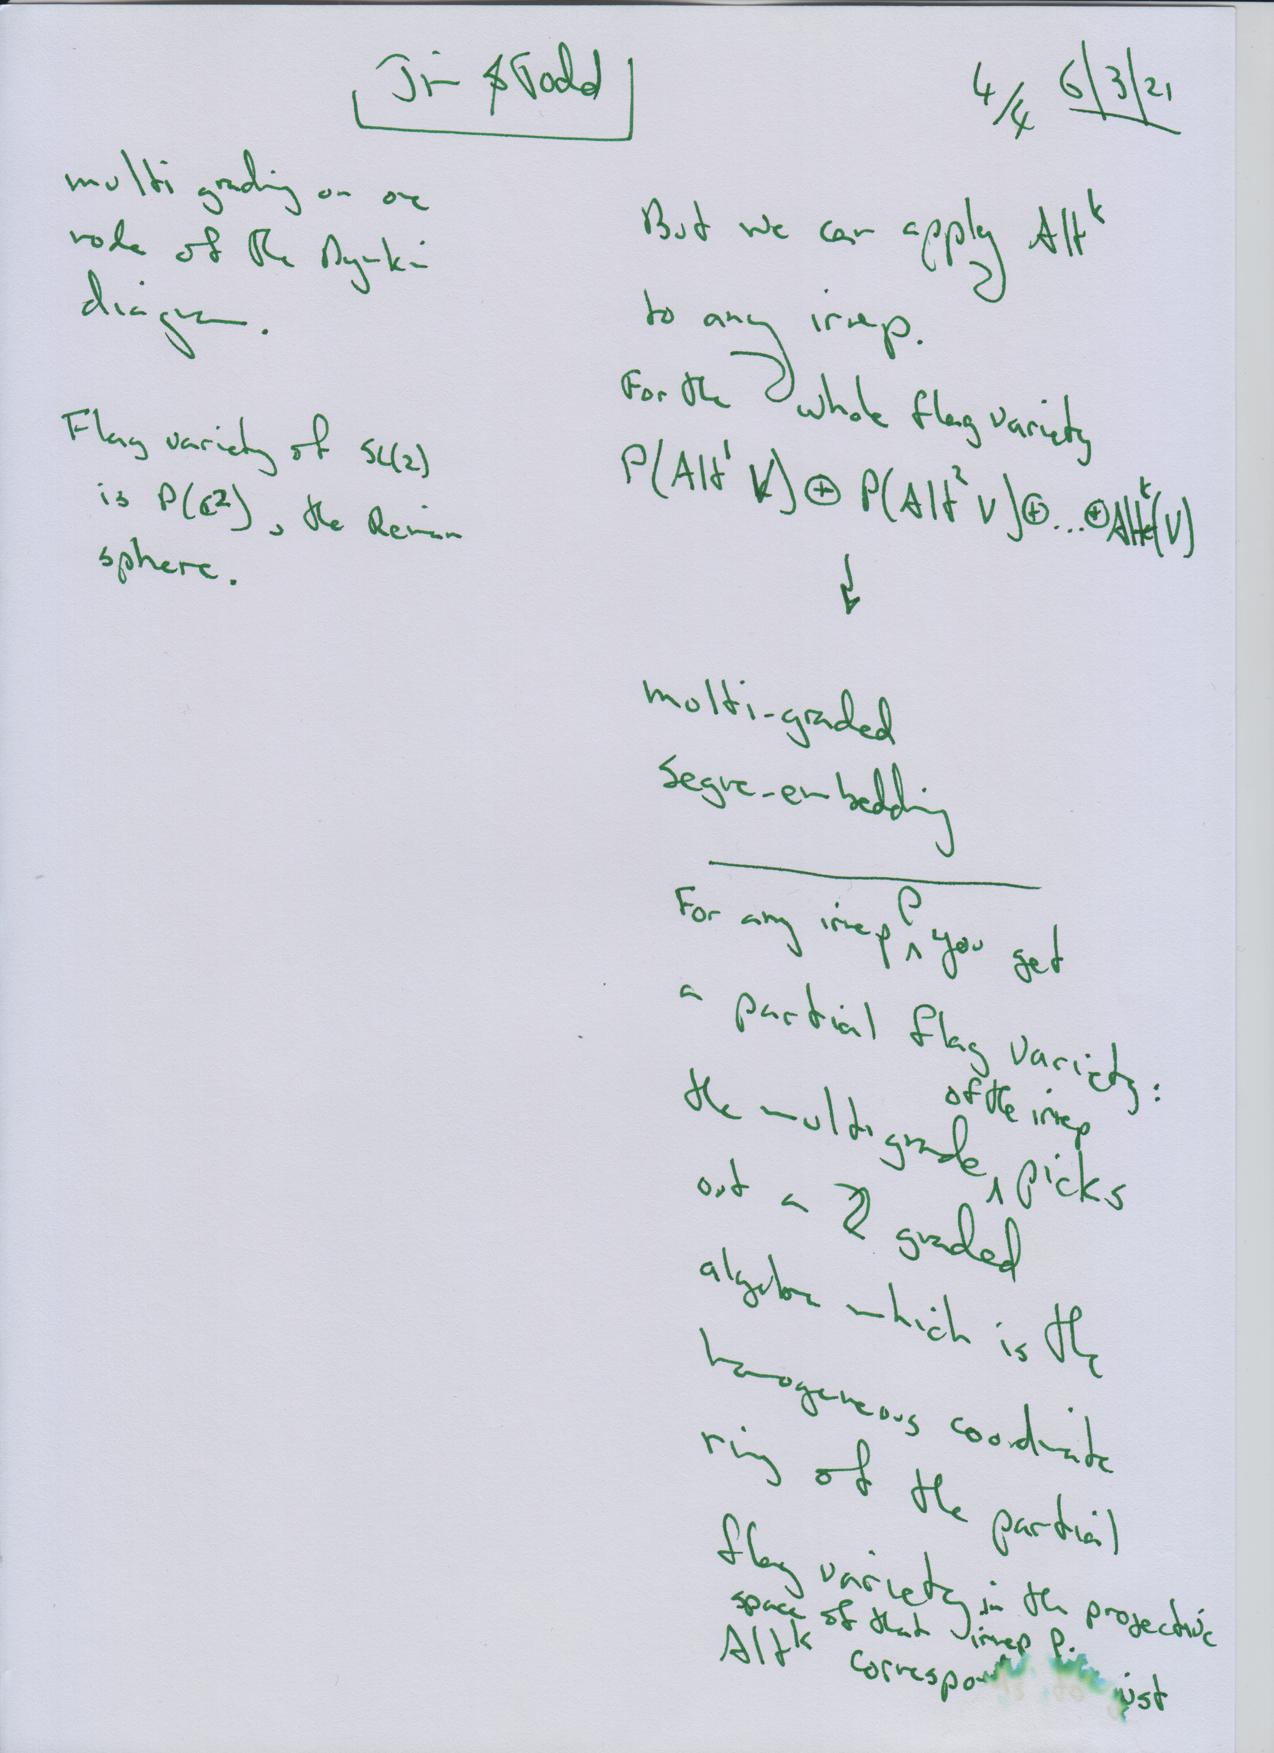 Jim & Todd
4/4 6/3/21
multi grading on one
node of the Dynkin
diagram.
Flag variety of SL(2)
is P(ℂ²), the Reiman
sphere.
But we can apply Alt^k
to any irrep.
For the whole flag variety
P(Alt¹ V) ⊕ P(Alt² V) ⊕ ... ⊕ Alt^k(V)
↓
multi-graded
Segre-embedding
For any irrep ρ you get
a partial flag variety:
the multigrade of the irrep picks
out a ℤ graded
algebra which is the
homogeneous coordinate
ring of the partial
flag variety in the projective
space of that irrep ρ.
Alt^k just